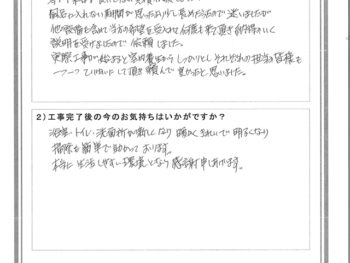 風呂に入れない期間が思ったより少し長めだったので迷いましたが
他の設備も含めて当方の希望を受入れて何度も来て頂き納得のいく
説明を受けましたので依頼しました。
実際工事が始まると
しっかりとしそれぞれの担当の皆様も
一つ一つていねいにして頂き頼んで良かったと思いました。
2)工事完了後の今のお気持ちはいかがですか？
浴室・トイレ・洗面所が新しくなり 暖かくきれいで明るくなり
掃除も簡単で助かっております。
本当に生活しやすい環境となり感謝申しあげます。